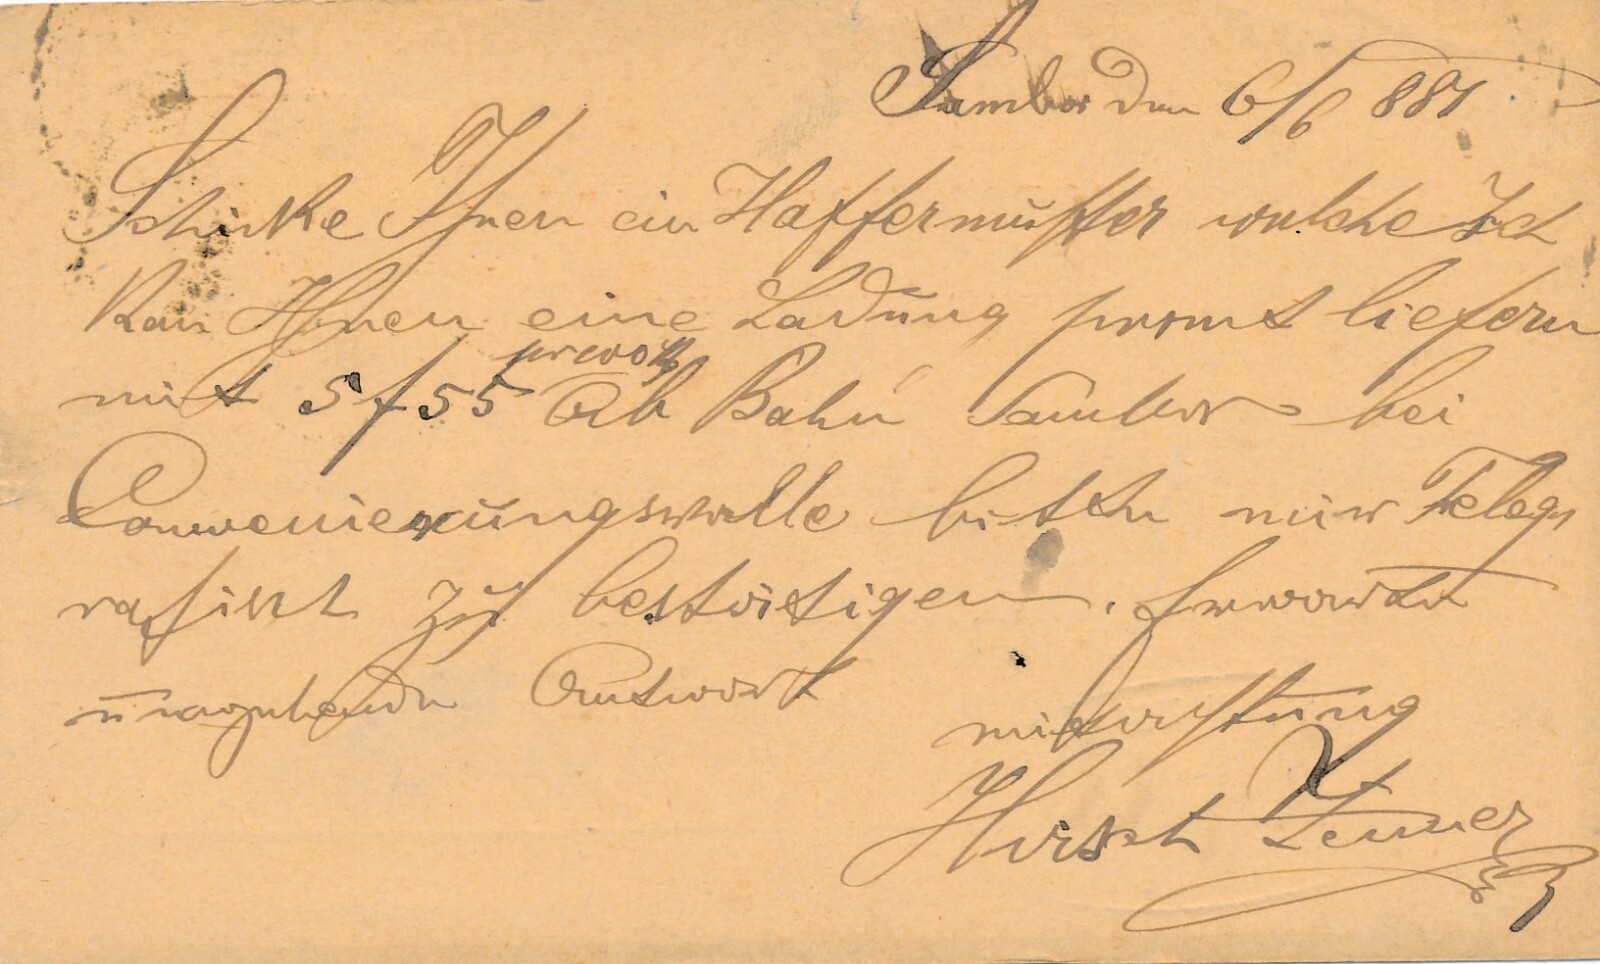 Sambor den 6/6 887
Schicke Ihnen ein Haffermuster welche Ich
Kan Ihnen eine Ladung promt liefern
mit 5 f 55 Ab Bahn Sambor bei
Convenierungsvalle bitte mir Teleg
rafisch zu bestätigen. Erwarte
umgehende Antwort
mit Achtung
Hirsch